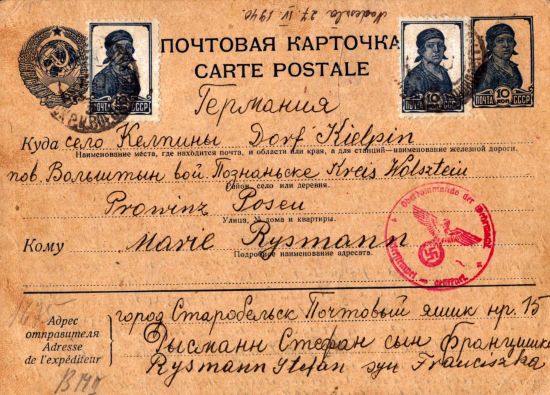 Nadeszla 27 IV. 1940.
ПОЧТОВАЯ КАРТОЧКА
CARTE POSTALE
ПОЧТА 10 КОП СССР
Германия
Куда село Келпины Dorf Kielpin
Наименование места, где находится почта, и области или края, а для станций—наименование железной дороги.
пов. Волштын вой. Познаньске Kreis Wolsztein
Район, село или деревня.
Prowinz Posen
Улица, № дома и квартиры.
Кому Marie Rysmann
Подробное наименование адресата.
Oberkommando der Wehrmacht
Адрес отправителя
Adresse de l'expéditeur
город Старобельск Почтовый яшик нр. 15
Рысманн Стефан сын Францишка
Rysmann Stefan syn Franciszka